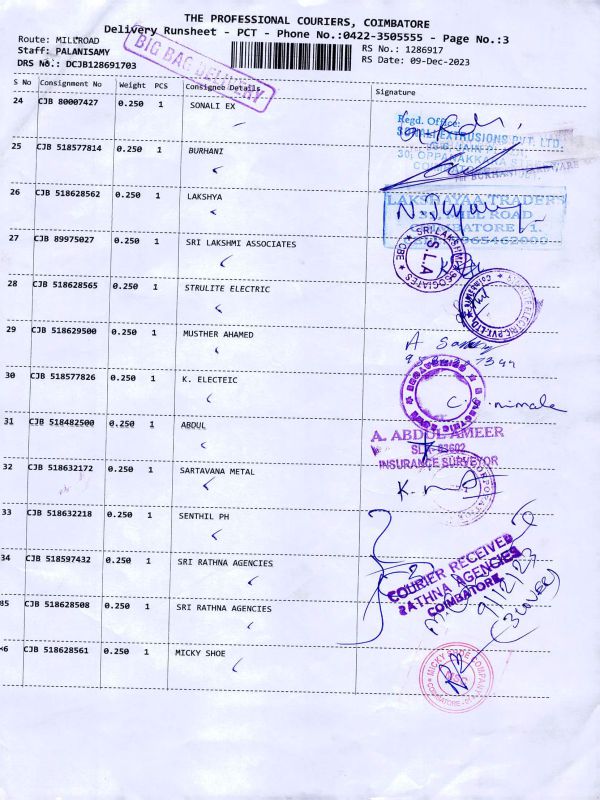 THE PROFESSIONAL COURIERS, COIMBATORE
Delivery Runsheet - PCT - Phone No.:0422-3505555 - Page No.:3
Route: MILLROAD
RS No.: 1286917
Staff: PALANISAMY
RS Date: 09-Dec-2023
DRS No.: DCJB128691703
BIG BAG DELIVERY
S No Consignment No Weight PCS Consignee Details Signature
24 CJB 80007427 0.250 1 SONALI EX
Regd. Office:
EXTRUSIONS PVT. LTD.
25 CJB 518577814 0.250 1 BURHANI
30, OPPANAKKARA STREET
26 CJB 518628562 0.250 1 LAKSHYA
LAKSHAYAA TRADERS
MILL ROAD
COIMBATORE 1.
27 CJB 89975027 0.250 1 SRI LAKSHMI ASSOCIATES
SRI LAKSHMI ASSOCIATES CBE
S.L.A
28 CJB 518628565 0.250 1 STRULITE ELECTRIC
29 CJB 518629500 0.250 1 MUSTHER AHAMED
30 CJB 518577826 0.250 1 K. ELECTEIC
C. nimala
31 CJB 518482500 0.250 1 ABDUL
A. ABDUL AMEER
INSURANCE SURVEYOR
32 CJB 518632172 0.250 1 SARTAVANA METAL
33 CJB 518632218 0.250 1 SENTHIL PH
34 CJB 518597432 0.250 1 SRI RATHNA AGENCIES
COURIER RECEIVED
RATHNA AGENCIES
COIMBATORE
9/12/23
35 CJB 518628508 0.250 1 SRI RATHNA AGENCIES
(3COVER)
36 CJB 518628561 0.250 1 MICKY SHOE
MICKY SHOE COMPANY